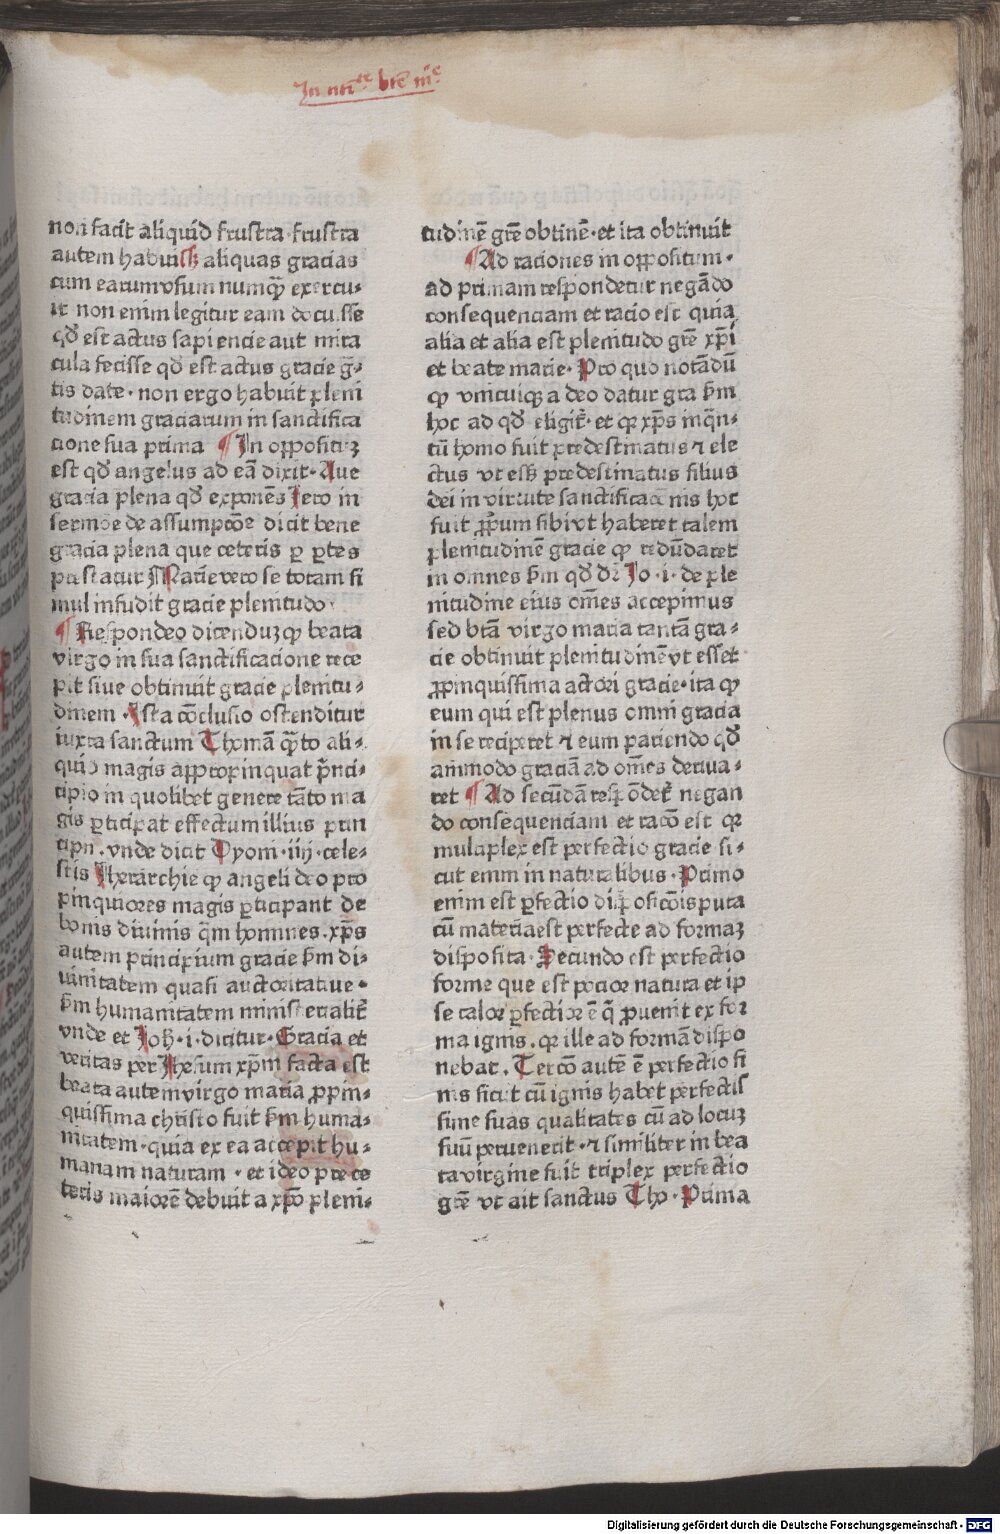 In nati^te bte m^e
non facit aliquid frustra frustra
autem habuiss; aliquas gracias
cum earum vsum numq̃ exercu⸗
it non enim legitur eam docu.sse
qd̕ est actus sapiencie aut mira
cula fecisse qd̕ est actus gracie g̃⸗
tis date · non ergo habuit pleni
tudinem graciarum in sanctifica
cione sua prima ¶ In opposituꝫ
est qd̕ angelus ad eã dixit · Aue
gracia plena qd̕ exponẽs Jero in
sermõe de assumpcõe dicit bene
gracia plena que ceteris ꝑ ꝑtes
prestatur Marie vero se totam si
mul infudit gracie plenitudo ·
¶ Respondeo dicenduꝫ ꝙ beata
virgo in sua sanctificacione rece
pit siue obtinuit gracie plenitu⸗
dinem · Ista cõclusio ostenditur
iuxta sanctum Thomã q̃to ali⸗
quid magis appropinquat p̃nci⸗
cipio in quolibet genere tãto ma
gis ꝑticipat effectum illius prin
cipii . vnde dicit Dyoni · iiij · cele⸗
stis Iherarchie ꝙ angeli deo pro
pinquiores magis ꝑticipant de
bonis diuinis q̃m homines · xp̃s
autem principium gracie s̃m di⸗
uinitatem quasi auctoritatiue ·
s̃m humanitatem ministerialit̕
vnde et Joh̃ · i · dicitur · Gracia et
veritas per Jhesum xp̃m facta est
beata autem virgo maria ꝓpin⸗
quissima christo fuit s̃m huma⸗
nitatem · quia ex ea accepit hu⸗
manam naturam · et ideo pre ce
teris maiorẽ debuit a xp̃o pleni⸗
tudinẽ gr̃e obtinẽ · et ita obtinuit
¶ Ad raciones in oppositum ·
ad primam respondetur negãdo
consequenciam et racio est quia
alia et alia est plenitudo gr̃e xp̃i
et beate marie · Pro quo notãdũ
ꝙ vnicuiqꝫ a deo datur gr̃a s̃m
hoc ad qd̕ eligit̕ · et qꝛ xp̃s inq̃n⸗
tũ homo fuit predestinatus ⁊ ele
ctus vt ess; predestinatus filius
dei in virtute sanctificacõnis hoc
fuit ꝓpũm sibi vt haberet talem
plenitudinẽ gracie ꝙ redũdaret
in omnes s̃m qd̕ dr̃ Jo · i · de ple
nitudine eius om̃es accepimus
sed btã virgo maria tantã gra⸗
cie obtinuit plenitudinẽ vt esset
ꝓpinquissima actori gracie · ita ꝙ
eum qui est plenus omni gracia
in se reciperet ⁊ eum pariendo qd̕
ammodo graciã ad om̃es deriua⸗
ret ¶ Ad secũdã respõdet̕ negan
do consequenciam et racõ est qꝛ
multiplex est perfectio gracie si⸗
cut enim in naturalibus · Primo
enim est ꝑfectio disposicõis puta
cũ materia est perfecte ad formaꝫ
disposita · Secundo est perfectio
forme que est pocior natura et ip
se calor ꝑfectior ẽ q̃ ꝓuenit ex for
ma ignis . qꝛ ille ad formã dispo
nebat . Tercõ autẽ ẽ perfectio fi
nis sicut cũ ignis habet perfectis
sime suas qualitates cũ ad locuꝫ
suũ peruenerit · ⁊ similiter in bea
ta virgine fuit triplex perfectio
gr̃e vt ait sanctus Tho · Prima
Digitalisierung gefördert durch die Deutsche Forschungsgemeinschaft - DFG